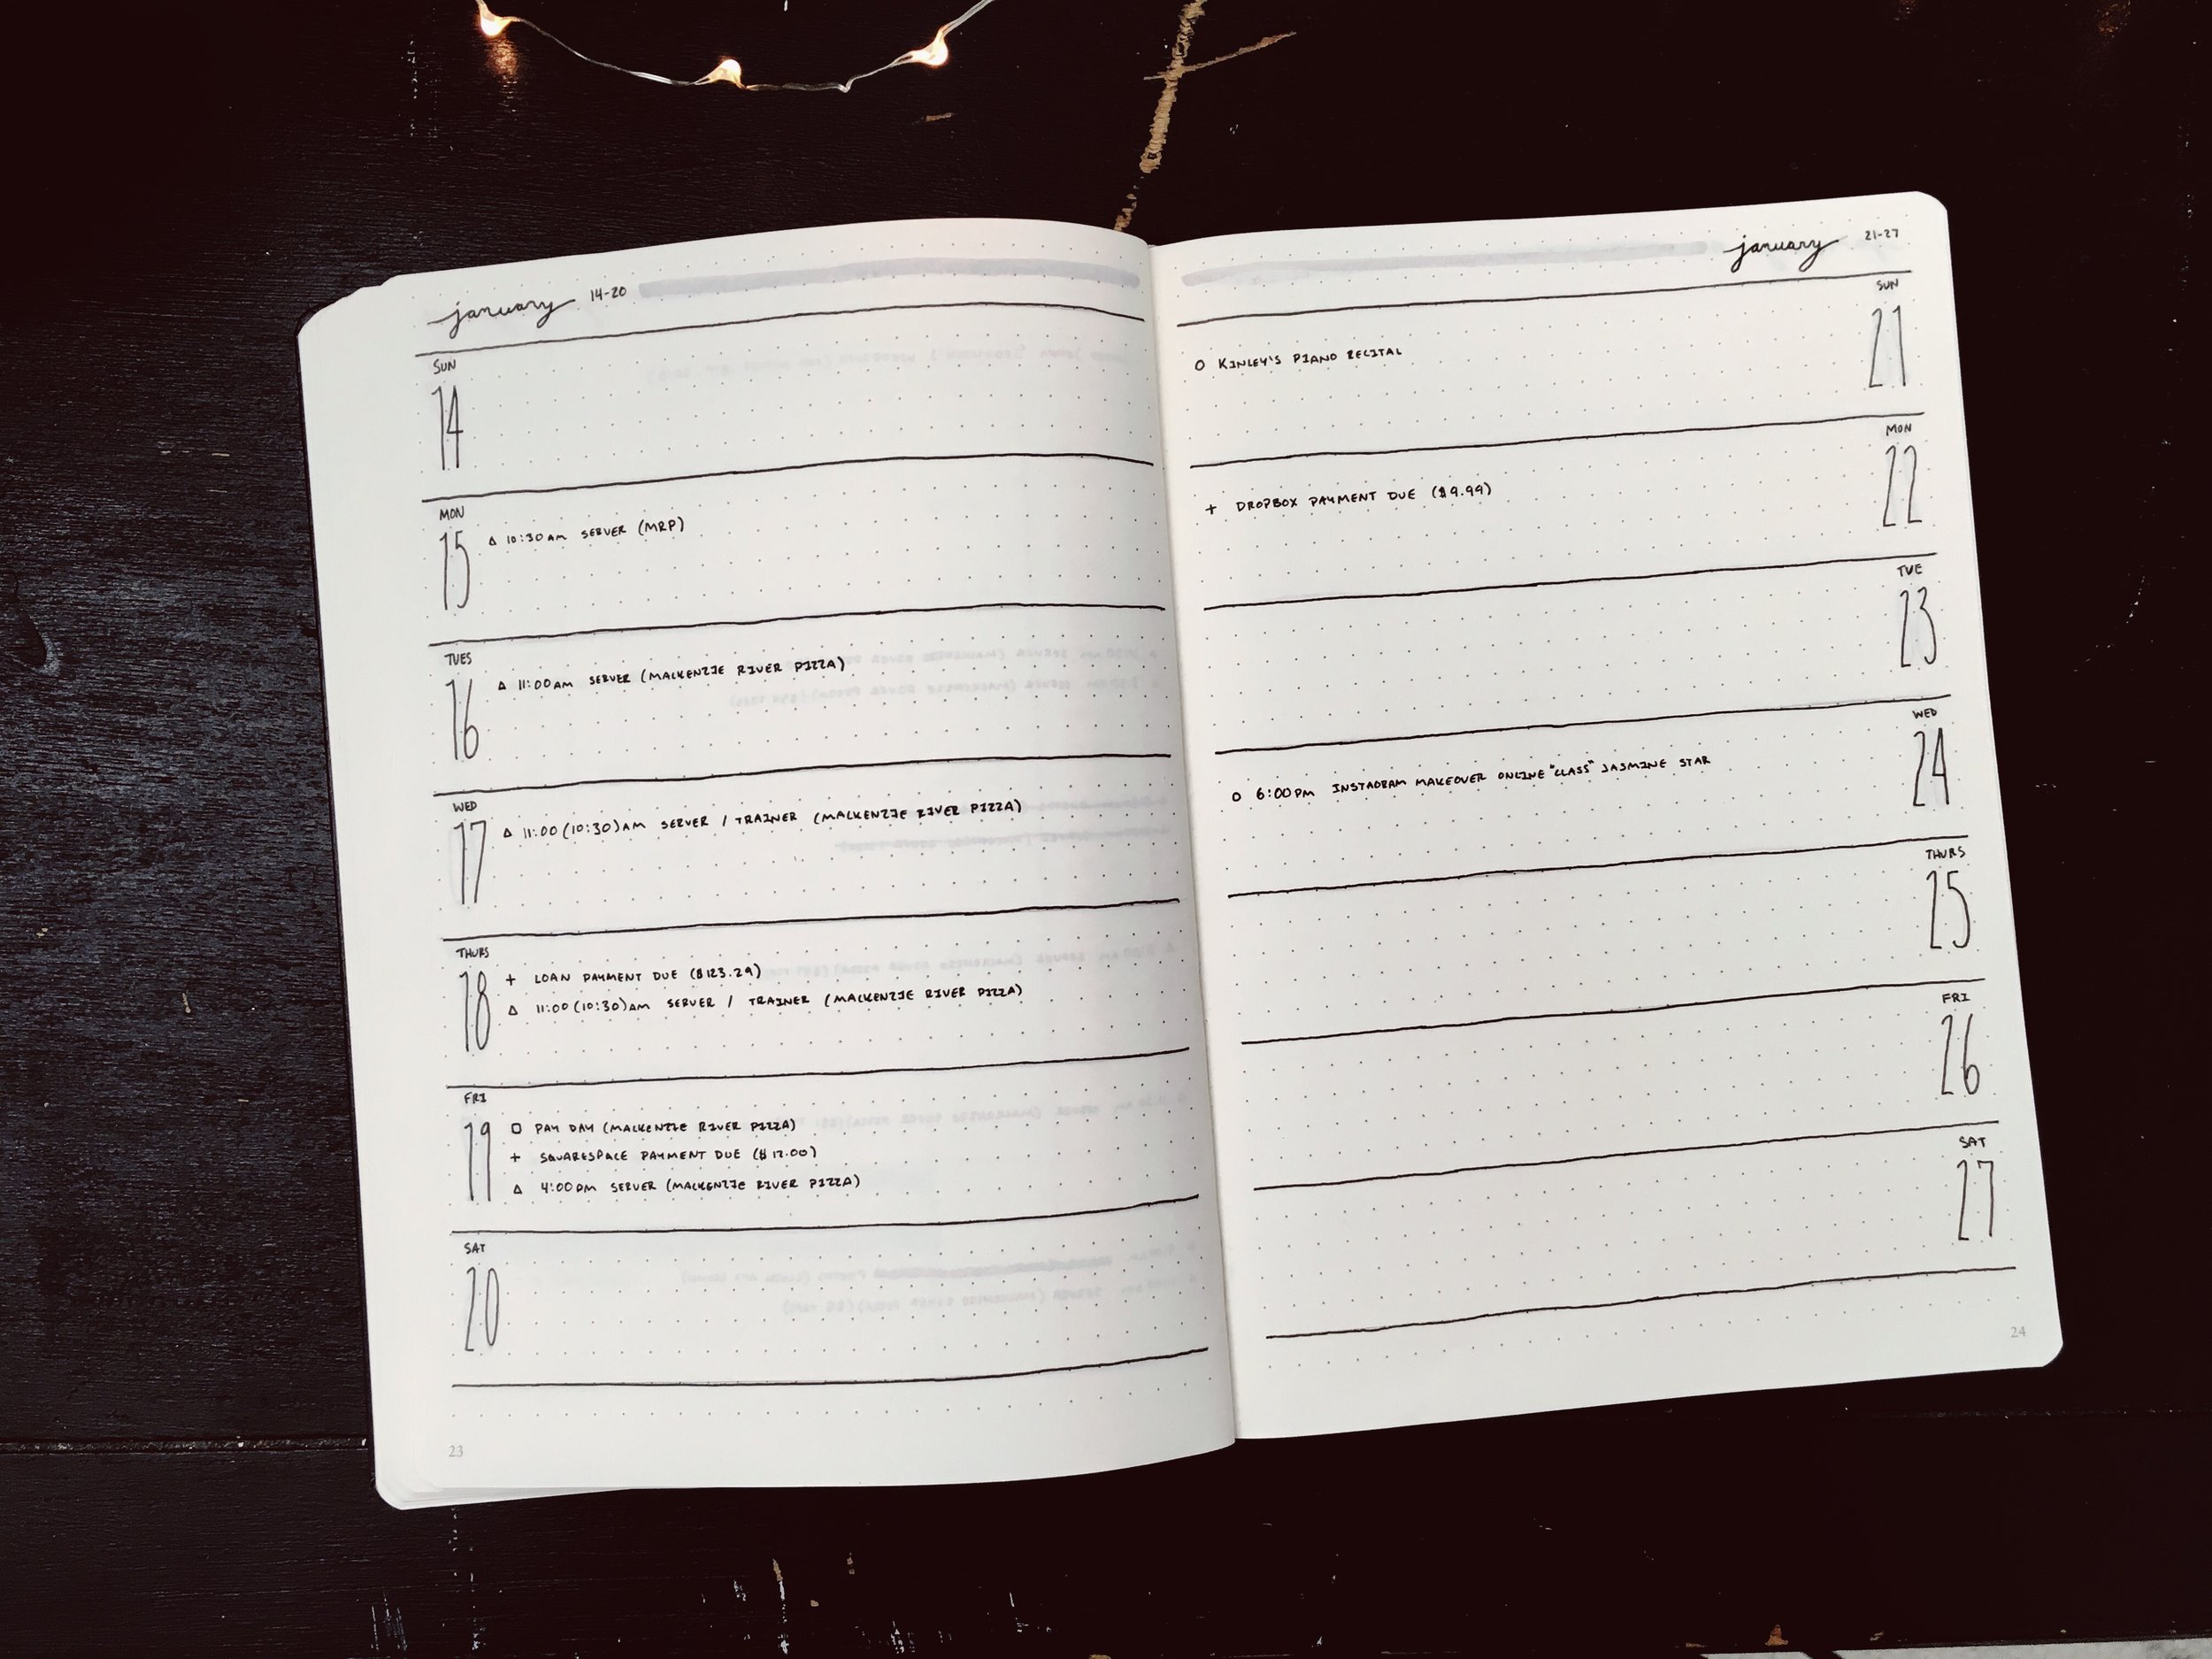 january 14-20
SUN
14
MON
15
△ 10:30AM SERVER (MRP)
TUES
16
△ 11:00AM SERVER (MACKENZIE RIVER PIZZA)
WED
17
△ 11:00(10:30)AM SERVER / TRAINER (MACKENZIE RIVER PIZZA)
THURS
18
+ LOAN PAYMENT DUE ($123.29)
△ 11:00(10:30)AM SERVER / TRAINER (MACKENZIE RIVER PIZZA)
FRI
19
□ PAY DAY (MACKENZIE RIVER PIZZA)
+ SQUARESPACE PAYMENT DUE ($12.00)
△ 4:00PM SERVER (MACKENZIE RIVER PIZZA)
SAT
20
23
january 21-27
SUN
21
O KINLEY'S PIANO RECITAL
MON
22
+ DROPBOX PAYMENT DUE ($9.99)
TUE
23
WED
24
O 6:00PM INSTAGRAM MAKEOVER ONLINE "CLASS" JASMINE STAR
THURS
25
FRI
26
SAT
27
24